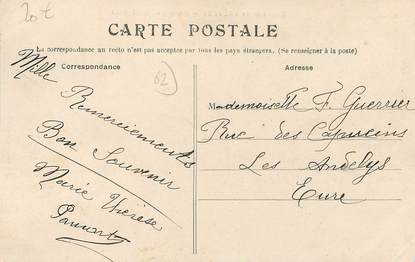 20€
CARTE POSTALE
La correspondance au recto n'est pas acceptée par tous les pays étrangers. (Se renseigner à la poste)
Correspondance
Adresse
62
Mille
Remerciements
Bon Souvenir
Marie Thérèse
Mademoiselle F. Guerrier
Rue des Capucins
Les Andelys
Eure